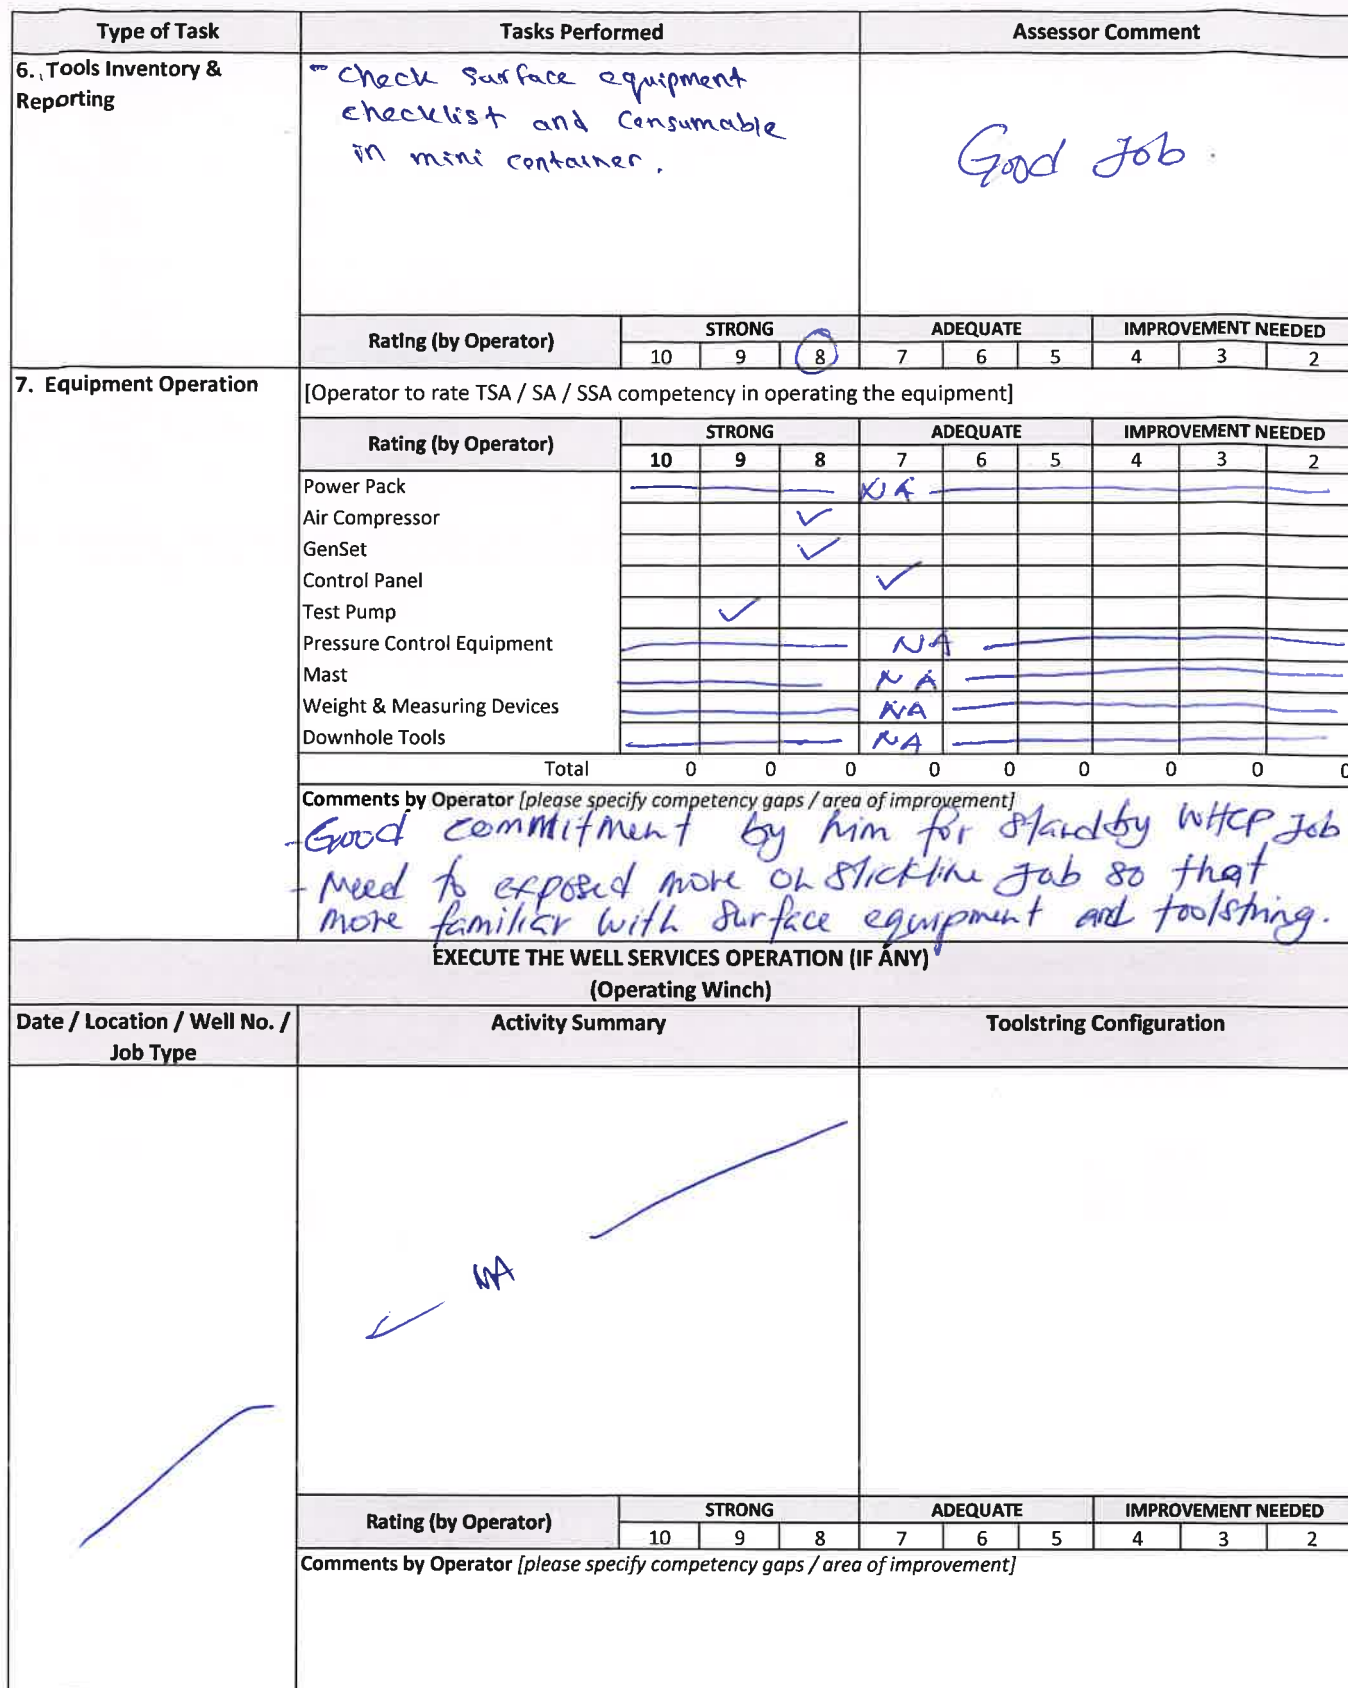 Type of Task Tasks Performed Assessor Comment
6. Tools Inventory &
Reporting
- Check Surface equipment
checklist and Consumable
in mini container.
Good Job.
Rating (by Operator) STRONG ADEQUATE IMPROVEMENT NEEDED
10 9 8 7 6 5 4 3 2
7. Equipment Operation
[Operator to rate TSA / SA / SSA competency in operating the equipment]
Rating (by Operator) STRONG ADEQUATE IMPROVEMENT NEEDED
10 9 8 7 6 5 4 3 2
Power Pack NA
Air Compressor ✓
GenSet ✓
Control Panel ✓
Test Pump ✓
Pressure Control Equipment NA
Mast NA
Weight & Measuring Devices NA
Downhole Tools NA
Total 0 0 0 0 0 0 0 0 0
Comments by Operator [please specify competency gaps / area of improvement]
- Good commitment by him for standby WHCP Job
- Need to exposed more on Slickline Job so that
more familiar with Surface equipment and toolstring.
EXECUTE THE WELL SERVICES OPERATION (IF ANY)
(Operating Winch)
Date / Location / Well No. / Activity Summary Toolstring Configuration
Job Type
NA
Rating (by Operator) STRONG ADEQUATE IMPROVEMENT NEEDED
10 9 8 7 6 5 4 3 2
Comments by Operator [please specify competency gaps / area of improvement]